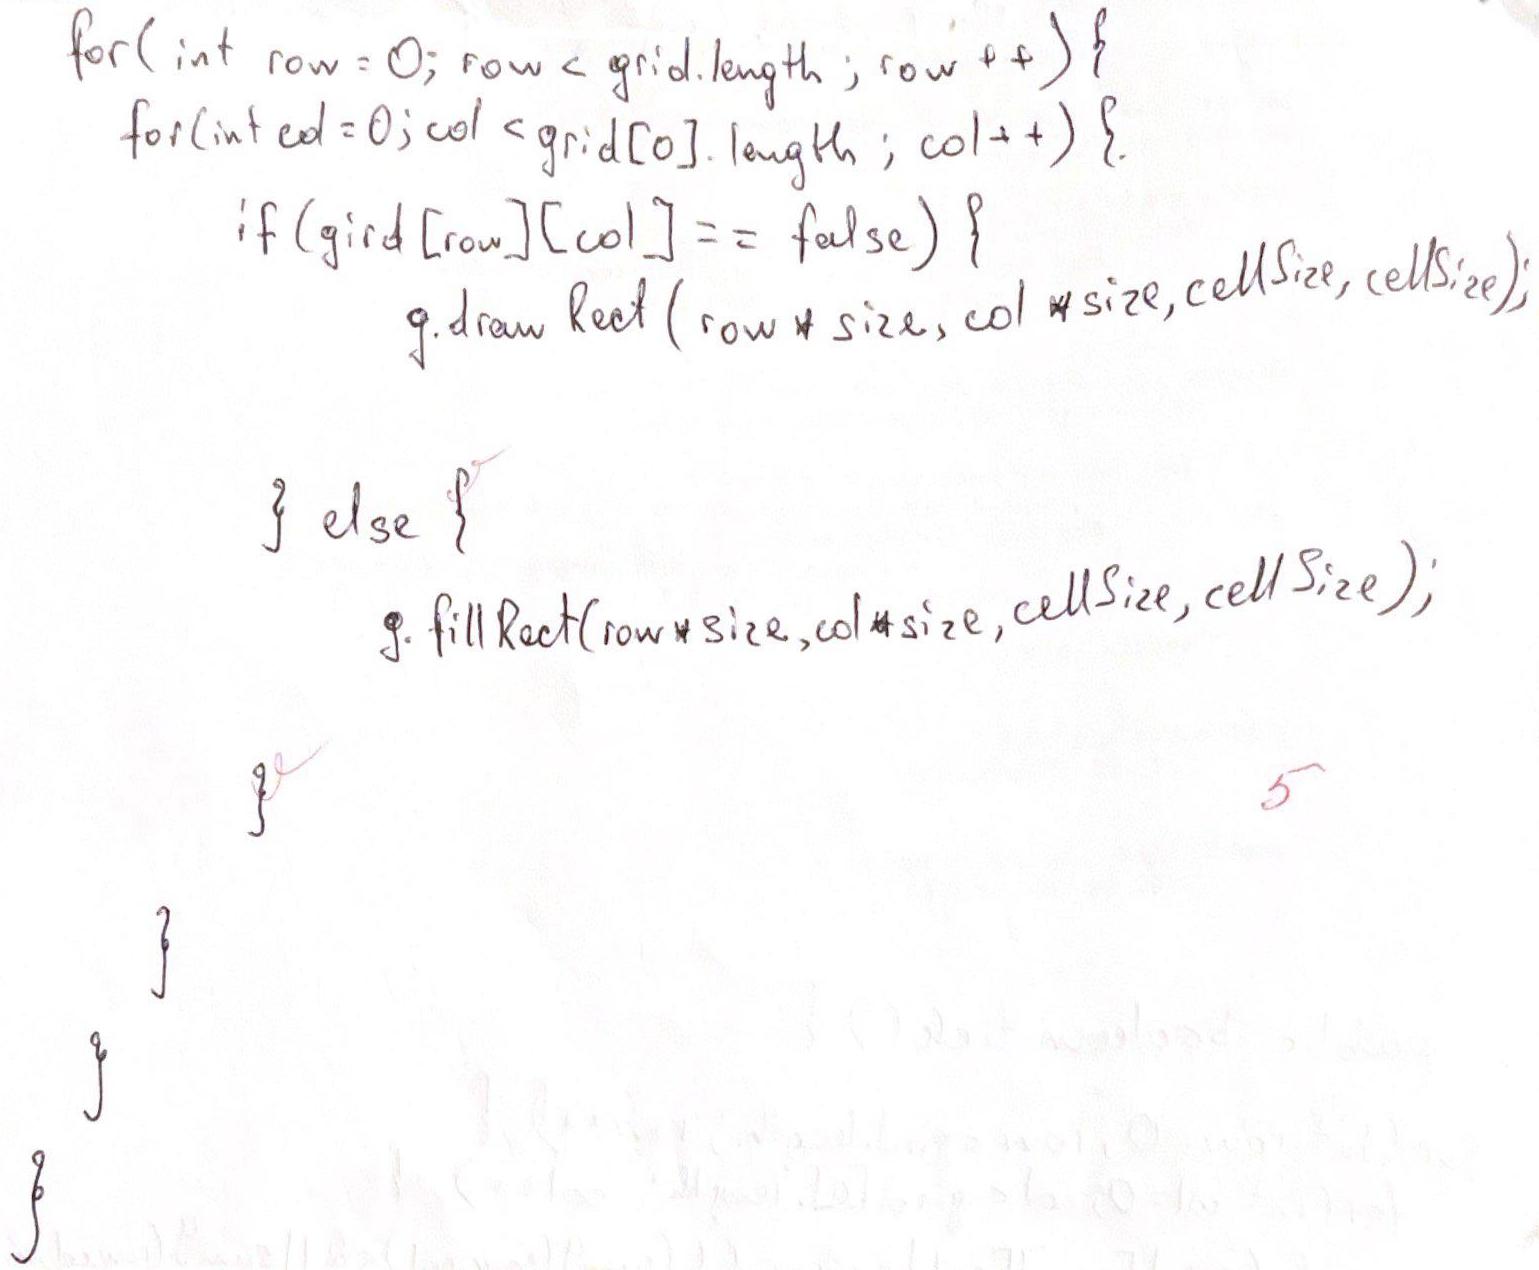 for(int row = 0; row < grid.length; row ++) {
for(int col = 0; col < grid[0].length; col++) {
if (gird [row][col] == false) {
g.draw Rect ( row * size, col * size, cellSize, cellSize);
} else {
g. fillRect(row * size, col * size, cellSize, cellSize);
}
5
}
}
}